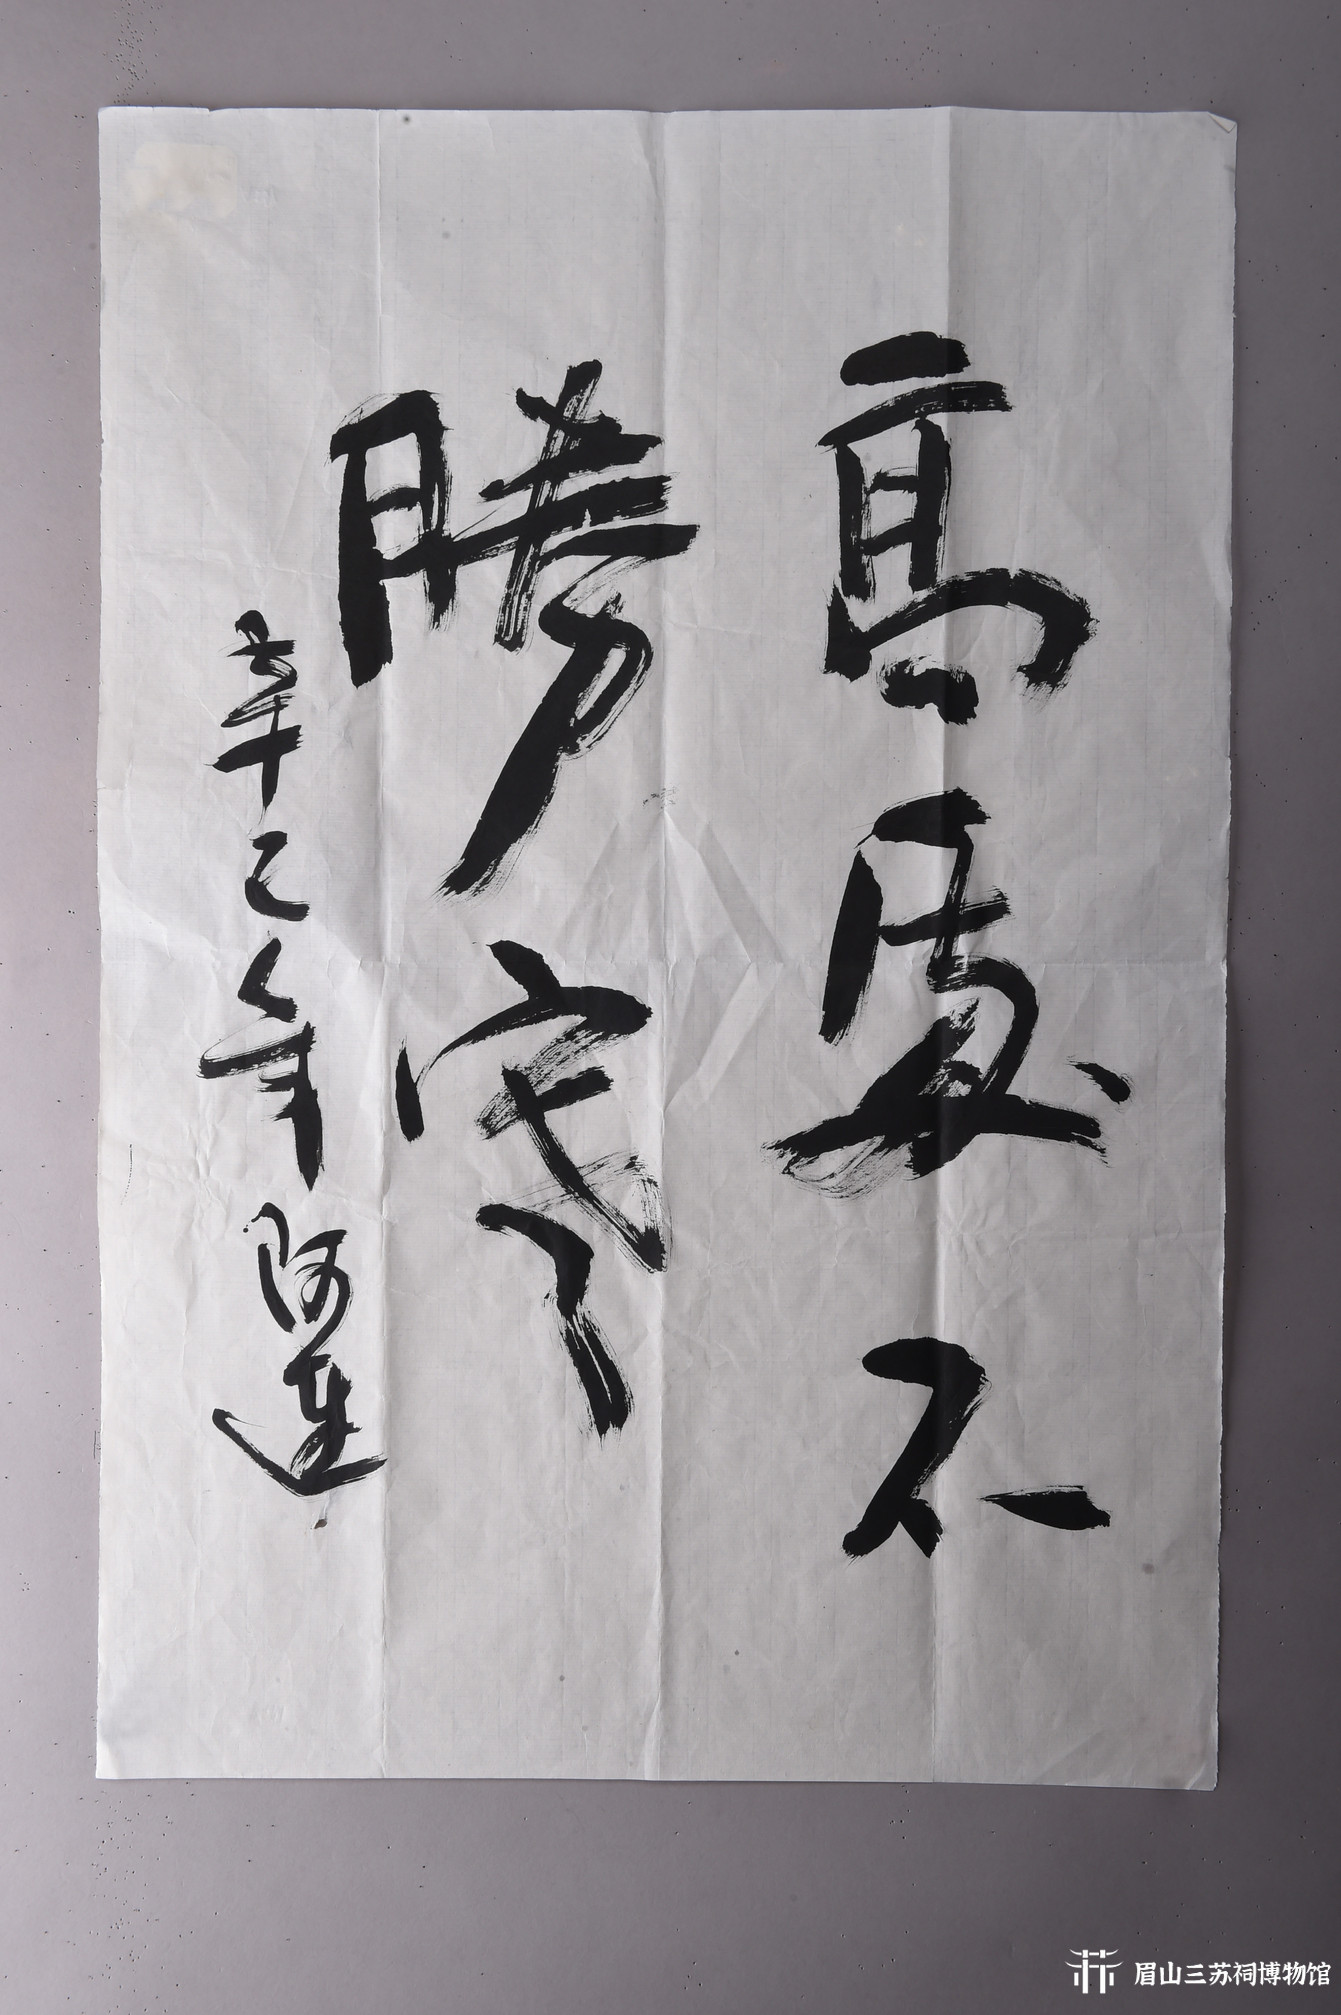 高處不
勝寒
辛巳年 阿蓮
眉山三苏祠博物馆